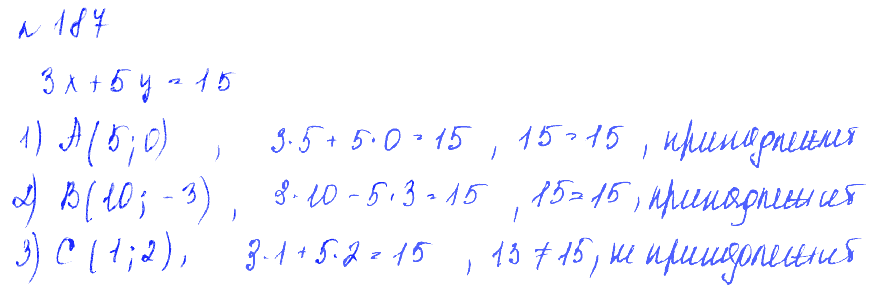 № 187
3x + 5y = 15
1) A(5; 0), 3·5 + 5·0 = 15, 15 = 15, принадлежит
2) B(10; -3), 3·10 - 5·3 = 15, 15 = 15, принадлежит
3) C(1; 2), 3·1 + 5·2 = 15, 13 ≠ 15, не принадлежит